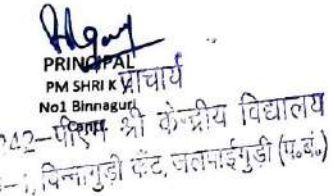 PRINCIPAL
प्राचार्य
PM SHRI K V
No1 Binnaguri
Cantt.
042-पीएम श्री केन्द्रीय विद्यालय
-1, विन्नागुड़ी कैंट, जलपाईगुड़ी (प०बं०)